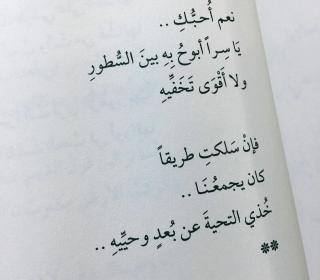 نعم أُحبُّكِ ..
يَا سِراً أبوحُ بِهِ بينَ السُّطورِ
ولا أَقْوَى تَخَفِّيهِ
فإنْ سَلكتِ طريقاً
كان يجمعُنَا ..
خُذي التحيةَ عن بُعدٍ وحيِّيهِ ..
**